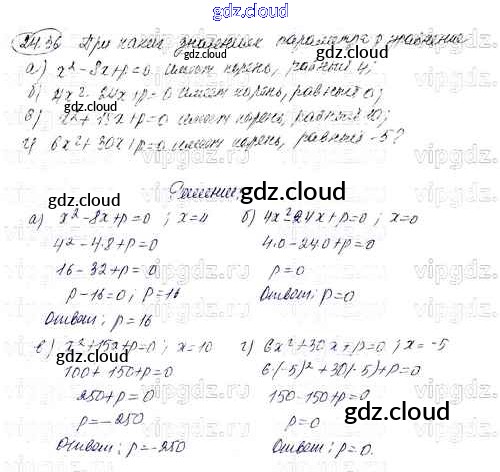 gdz.cloud
24.36 При каких значениях параметра p уравнение
а) x² - 8x + p = 0 имеет корень, равный 4;
б) 4x² - 24x + p = 0 имеет корень, равный 0;
в) x² + 15x + p = 0 имеет корень, равный 10;
г) 6x² + 30x + p = 0 имеет корень, равный -5?
gdz.cloud
Решение.
gdz.cloud
а) x² - 8x + p = 0; x = 4
4² - 4·8 + p = 0
16 - 32 + p = 0
p - 16 = 0; p = 16
Ответ: p = 16
б) 4x² - 24x + p = 0; x = 0
4·0 - 24·0 + p = 0
p = 0
Ответ: p = 0
gdz.cloud
в) x² + 15x + p = 0; x = 10
100 + 150 + p = 0
250 + p = 0
p = -250
Ответ: p = -250
gdz.cloud
г) 6x² + 30x + p = 0; x = -5
6(-5)² + 30(-5) + p = 0
150 - 150 + p = 0
p = 0
Ответ: p = 0.
gdz.cloud
gdz.cloud